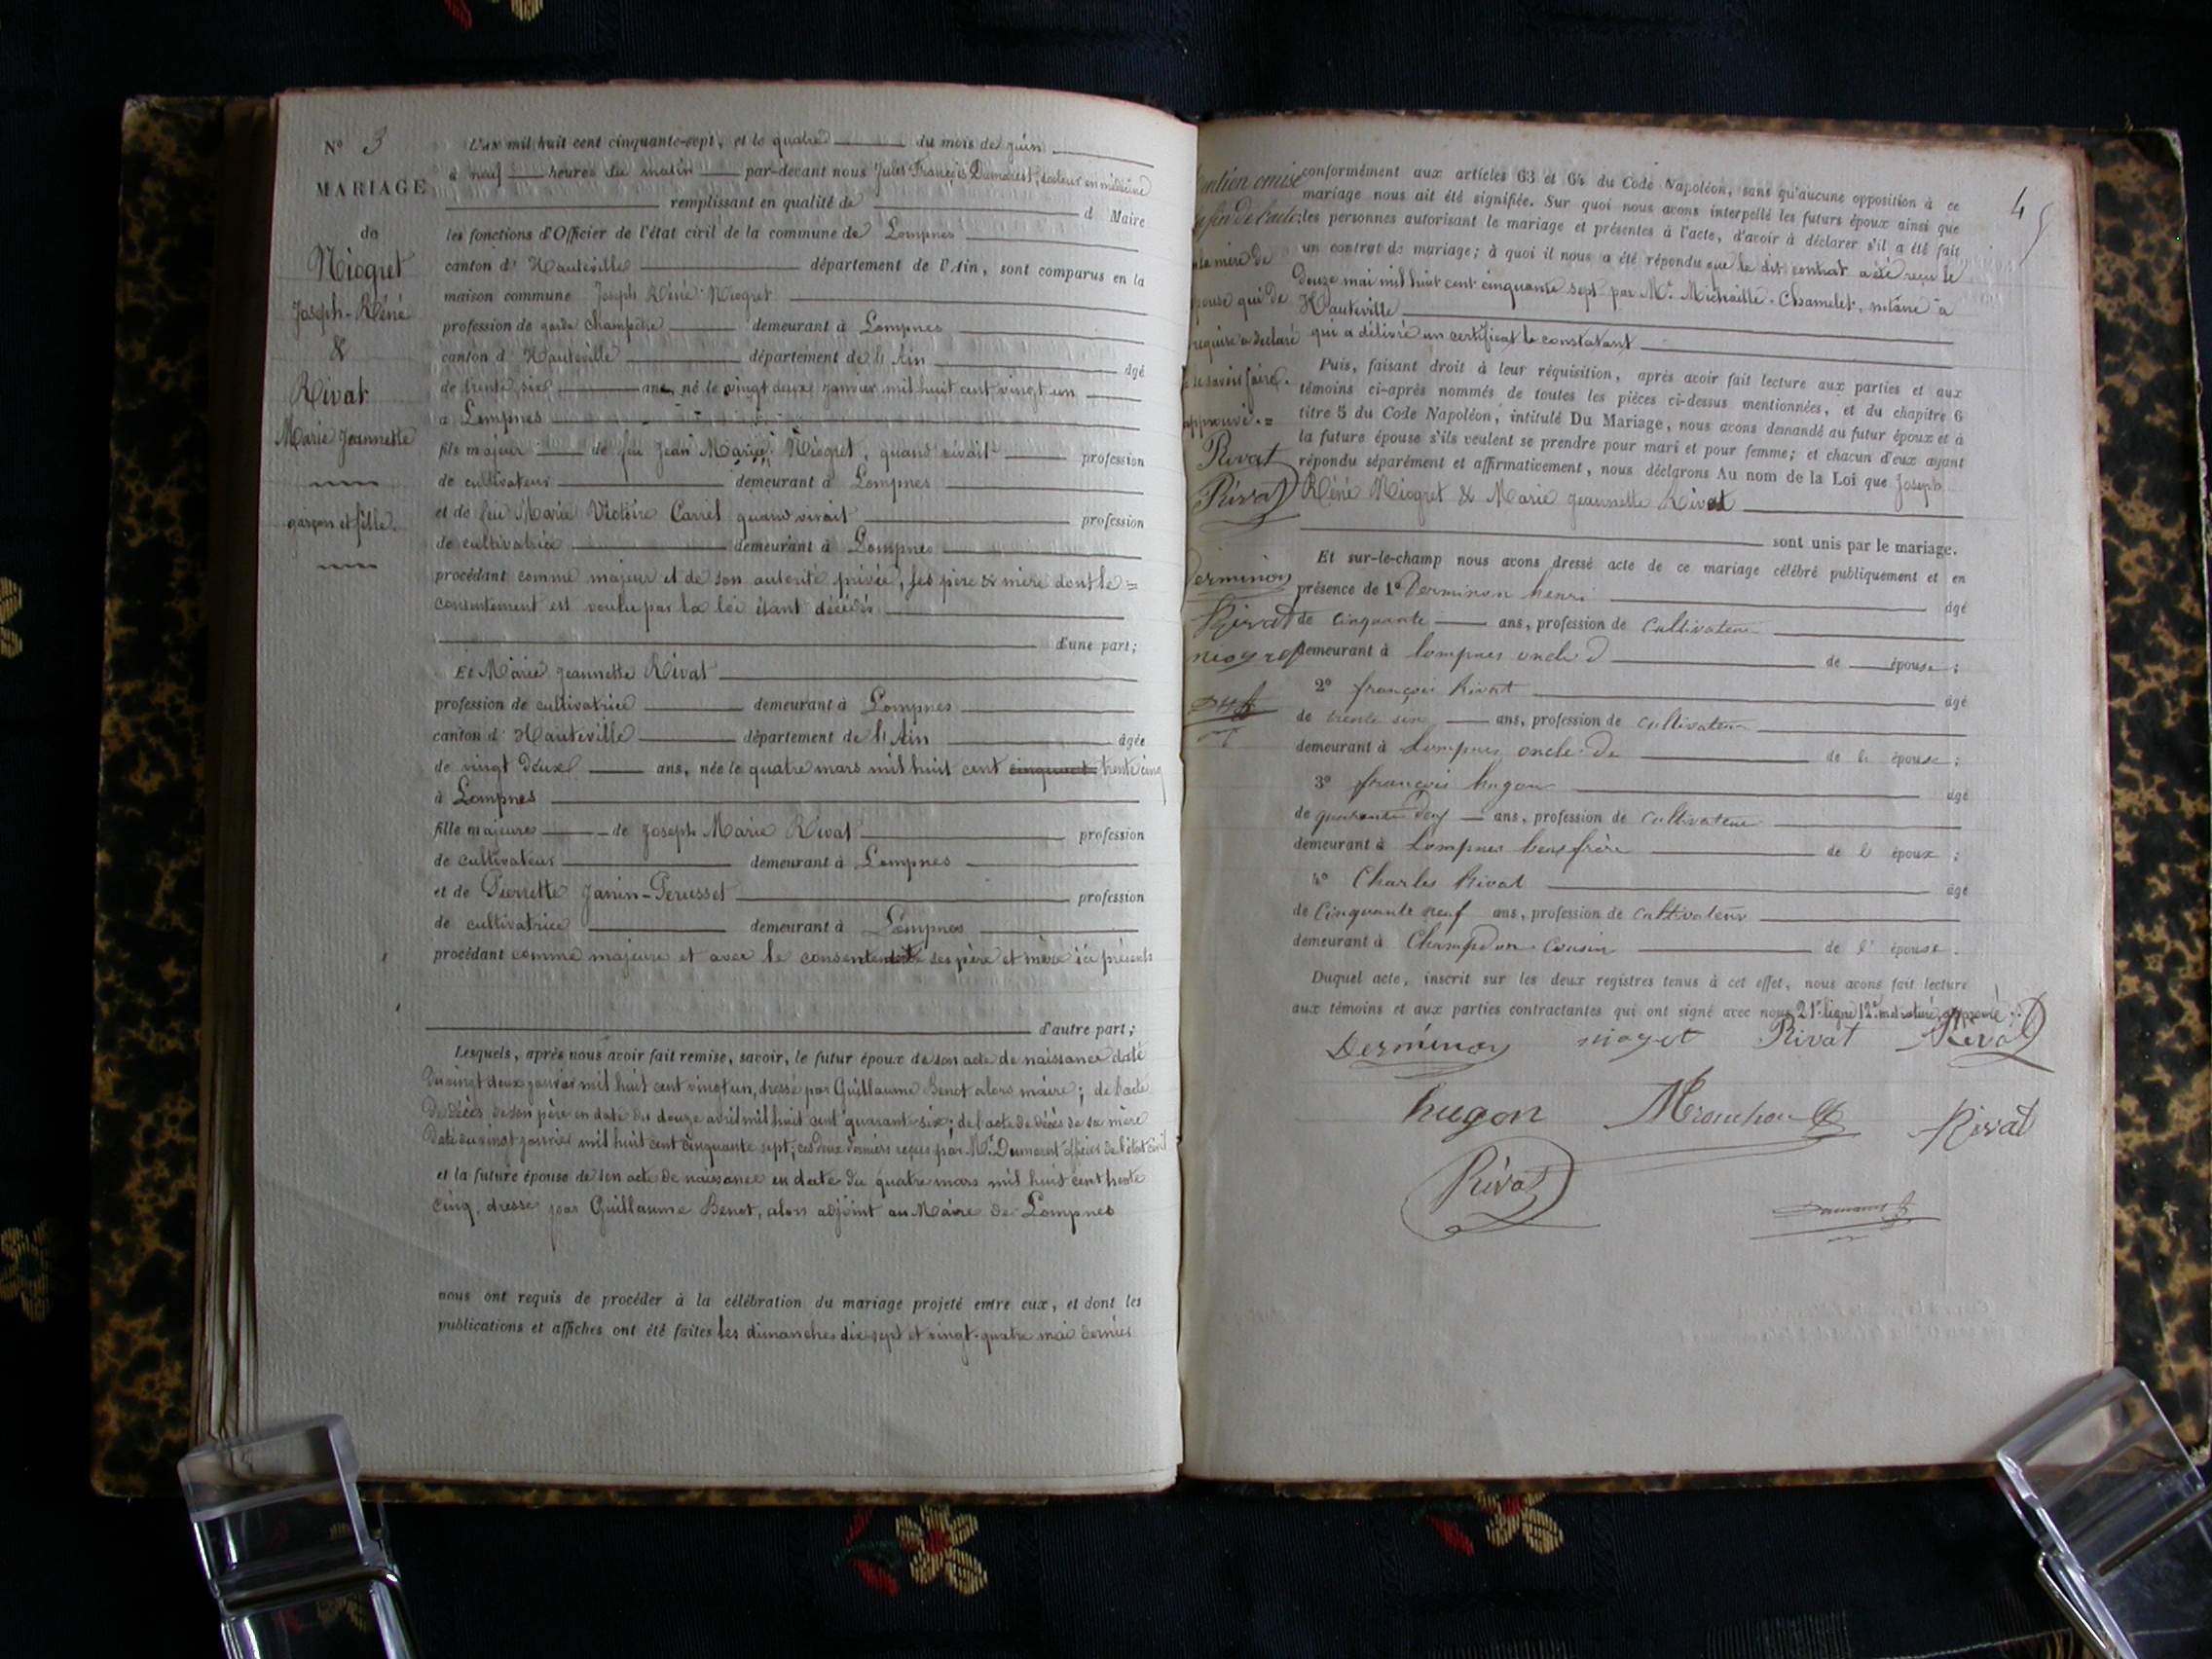 N° 3
MARIAGE
de
Niogret
Joseph-Réné
&
Rivat
Marie Jeannette
garçon et fille.
L'an mil huit cent cinquante-sept, et le quatre du mois de juin
à neuf heures du matin par-devant nous Jules François Dumarest, docteur en médecine
remplissant en qualité de d Maire
les fonctions d'Officier de l'état civil de la commune de Lompnes
canton d' Hauteville département de l'Ain, sont comparus en la
maison commune Joseph Réné Niogret
profession de garde champêtre demeurant à Lompnes
canton d' Hauteville département de l'Ain âgé
de trente six ans, né le vingt deux janvier mil huit cent vingt un
à Lompnes
fils majeur de feu Jean Marie Niogret, quand vivait profession
de cultivateur demeurant à Lompnes
et de feu Marie Victoire Carrel quand vivait profession
de cultivatrice demeurant à Lompnes
procédant comme majeur et de son autorité privée, ses père & mère dont le =
consentement est voulu par la loi étant décédés
d'une part;
Et Marie Jeannette Rivat
profession de cultivatrice demeurant à Lompnes
canton d' Hauteville département de l'Ain âgée
de vingt deux ans, née le quatre mars mil huit cent trente cinq
à Lompnes
fille majeure de Joseph Marie Rivat profession
de cultivateur demeurant à Lompnes
et de Pierrette Janin-Perusset profession
de cultivatrice demeurant à Lompnes
procédant comme majeure et avec le ses père et mère ici présents
d'autre part;
Lesquels, après nous avoir fait remise, savoir, le futur époux de son acte de naissance daté
du vingt deux janvier mil huit cent vingt un, dressé par Guillaume Benot alors maire; de l'acte
de décès de son père en date du douze avril mil huit cent quarant-six; de l'acte de décès de sa mère
daté du vingt janvier mil huit cent cinquante sept; ces deux derniers reçus par Mr. Dumarest officier de l'état civil
et la future épouse de son acte de naissance en date du quatre mars mil huit cent trente
cinq, dressé par Guillaume Benot, alors adjoint au Maire de Lompnes
nous ont requis de procéder à la célébration du mariage projeté entre eux, et dont les
publications et affiches ont été faites les dimanches dix-sept et vingt-quatre mai dernier
4
conformément aux articles 63 et 64 du Code Napoléon, sans qu'aucune opposition à ce
mariage nous ait été signifiée. Sur quoi nous avons interpellé les futurs époux ainsi que
les personnes autorisant le mariage et présentes à l'acte, d'avoir à déclarer s'il a été fait
un contrat de mariage; à quoi il nous a été répondu que le dit contrat a été reçu le
douze mai mil huit cent cinquante sept par Mr. Michaille-Chamelet, notaire à
Hauteville
qui a délivré un certificat le constatant
Puis, faisant droit à leur réquisition, après avoir fait lecture aux parties et aux
témoins ci-après nommés de toutes les pièces ci-dessus mentionnées, et du chapitre 6
titre 5 du Code Napoléon, intitulé Du Mariage, nous avons demandé au futur époux et à
la future épouse s'ils veulent se prendre pour mari et pour femme; et chacun d'eux ayant
répondu séparément et affirmativement, nous déclarons Au nom de la Loi que Joseph
Réné Niogret & Marie Jeannette Rivat
sont unis par le mariage.
Et sur-le-champ nous avons dressé acte de ce mariage célébré publiquement et en
présence de 1° Derminon henri âgé
de cinquante ans, profession de Cultivateur
demeurant à lompnes oncle d de épouse;
2° françois Rivat âgé
de trente ans, profession de Cultivateur
demeurant à Lompnes oncle de de l' épouse;
3° françois hugon âgé
de quarante ans, profession de Cultivateur
demeurant à Lompnes beaufrère de l' époux;
4° Charles Rivat âgé
de Cinquante neuf ans, profession de Cultivateur
demeurant à Champdor Cousin de l' épouse.
Duquel acte, inscrit sur les deux registres tenus à cet effet, nous avons fait lecture
aux témoins et aux parties contractantes qui ont signé avec nous 21e ligne 12e mot raturé approuvé.
Derminon niogret Rivat Rivat
hugon Rivat
Rivat
Dumarest
mention omise
fin de l'acte:
la mère de
épouse qui de
requise a déclaré
le savoir faire.
approuvé. =
Rivat
Rivat
Derminon
Rivat
niogret